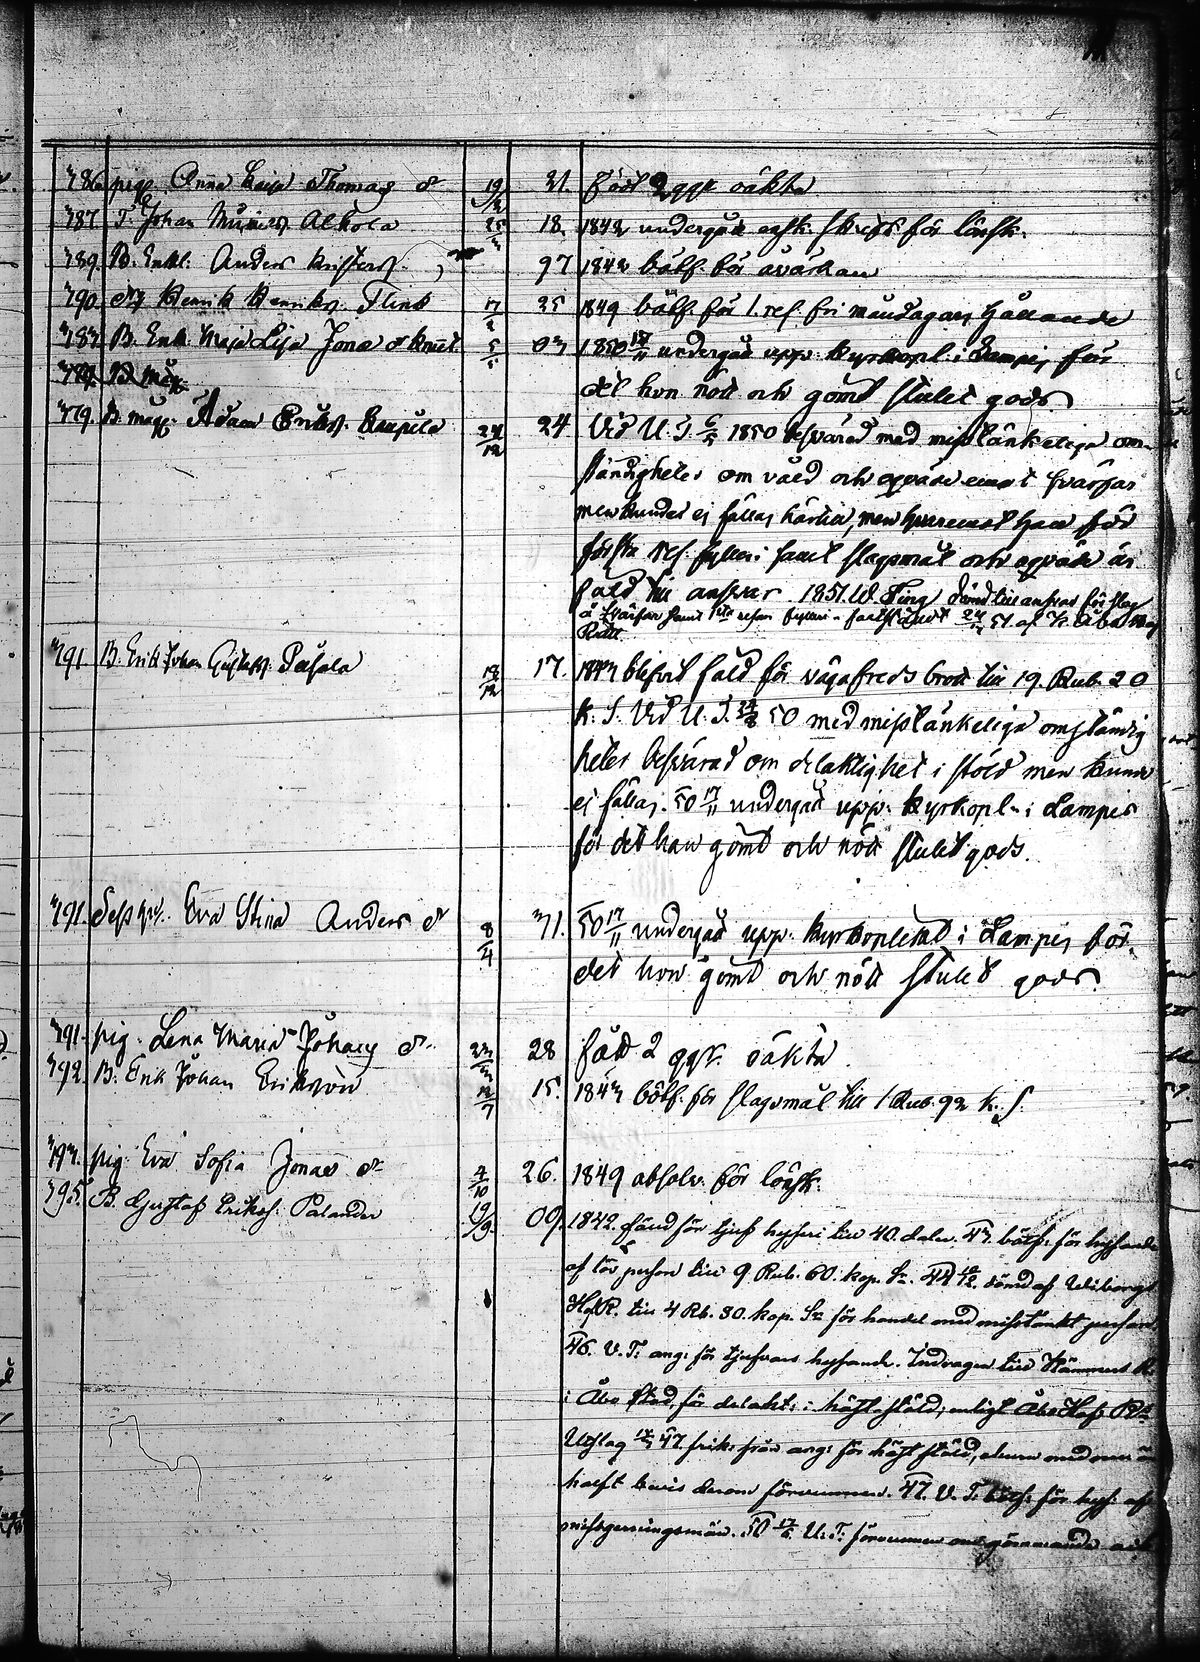 786 pig. Anna Caisa Thomas dr 19/2 21. födt 2 ggr oäkta
787 T. Johan Alkola 25 18. 1842 undergått enskr. skrift för lönsk.
789. B. Enkl. Anders Kristerss. 97 1842 bötf. för åvärkan
790. Henrik Henrikss. Flink 17 25 1849 bötf. för 1. res. fri måndagars hållande
787 B. Enk. Maja Lisa Jonas dr Knut 5 03 1850 17/11 undergått upp. kyrkopl. i Lampis för
det hon nött och gömt stulet gods
779. B. måg. Adam Erikss. Kaupila 24/12 24 Vid U. T. 6/5 1850 besvärad med misstänkeliga om-
ständigheter om våld och oqväde emot Svärfar
men kunde ej fällas härtill, men hvaremot han för
första res. fylleri samt slagsmål och oqväde är
fäld till ansvar. 1851 W. Ting dömd till ansvar för slag
å Svärfar samt 1sta resan fylleri 51 af K. Åbo Hof
Rätt.
791 B. Erik Johan Gustafss. PaSala 17. 1843 blifvit fäld för vägafreds brott till 19. Rub. 20
k. S. Vid U. T. 50 med misstänkeliga omständig
heter besvärad om delaktighet i stöld men kunde
ej fällas. 50 17/11 undergått upp. kyrkopl. i Lampis
för det han gömt och nött stulet gods.
791. Eva Stina Anders dr 8/4 31. 50 17/11 undergått upp. kyrkoplikt i Lampis för
det hon gömt och nött stulet gods.
791. pig. Lena Maria Johans dr 28 födt 2 ggr. oäkta
792. B. Erik Johan Eriksson 12/7 15. 1843 bötf. för slagsmål till 1 Rub. 92 k. S.
793. pig. Eva Sofia Jonas dr 4/10 26. 1849 absolv. för lönsk.
795. B. Gustaf Erikss. Palander 19/9. 09. 1842. fäld för tjuf hyseri till 40. daler. 43. bötf. för hysande
af lös person till 9 Rub. 60. kop. Sr. 44 dömd af Wiborgs
HofR. till 4 Rb. 30. kop. Sr för handel med misstänkt person.
46. V. T. ang. för tjufvars hysande. Indragen till Kämners R.
i Åbo Stad för delakt. i häststöld; enligt Åbo Hof Rts
Utslag 47 frik. från ang. för häst stöld, ehuru med mer än
halft bevis derom förvunnen. 47. V. T. bötf. för hys. af
missgerningsmän. 50 17/5 U. T. förvunnen om gömmande